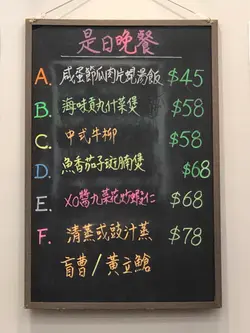 是日晚餐
A. 咸蛋節瓜肉片蜆湯飯 $45
B. 海味貢丸什菜煲 $58
C. 中式牛柳 $58
D. 魚香茄子斑腩煲 $68
E. XO醬九菜花炒蝦仁 $68
F. 清蒸或豉汁蒸 $78
盲曹/黃立鱠